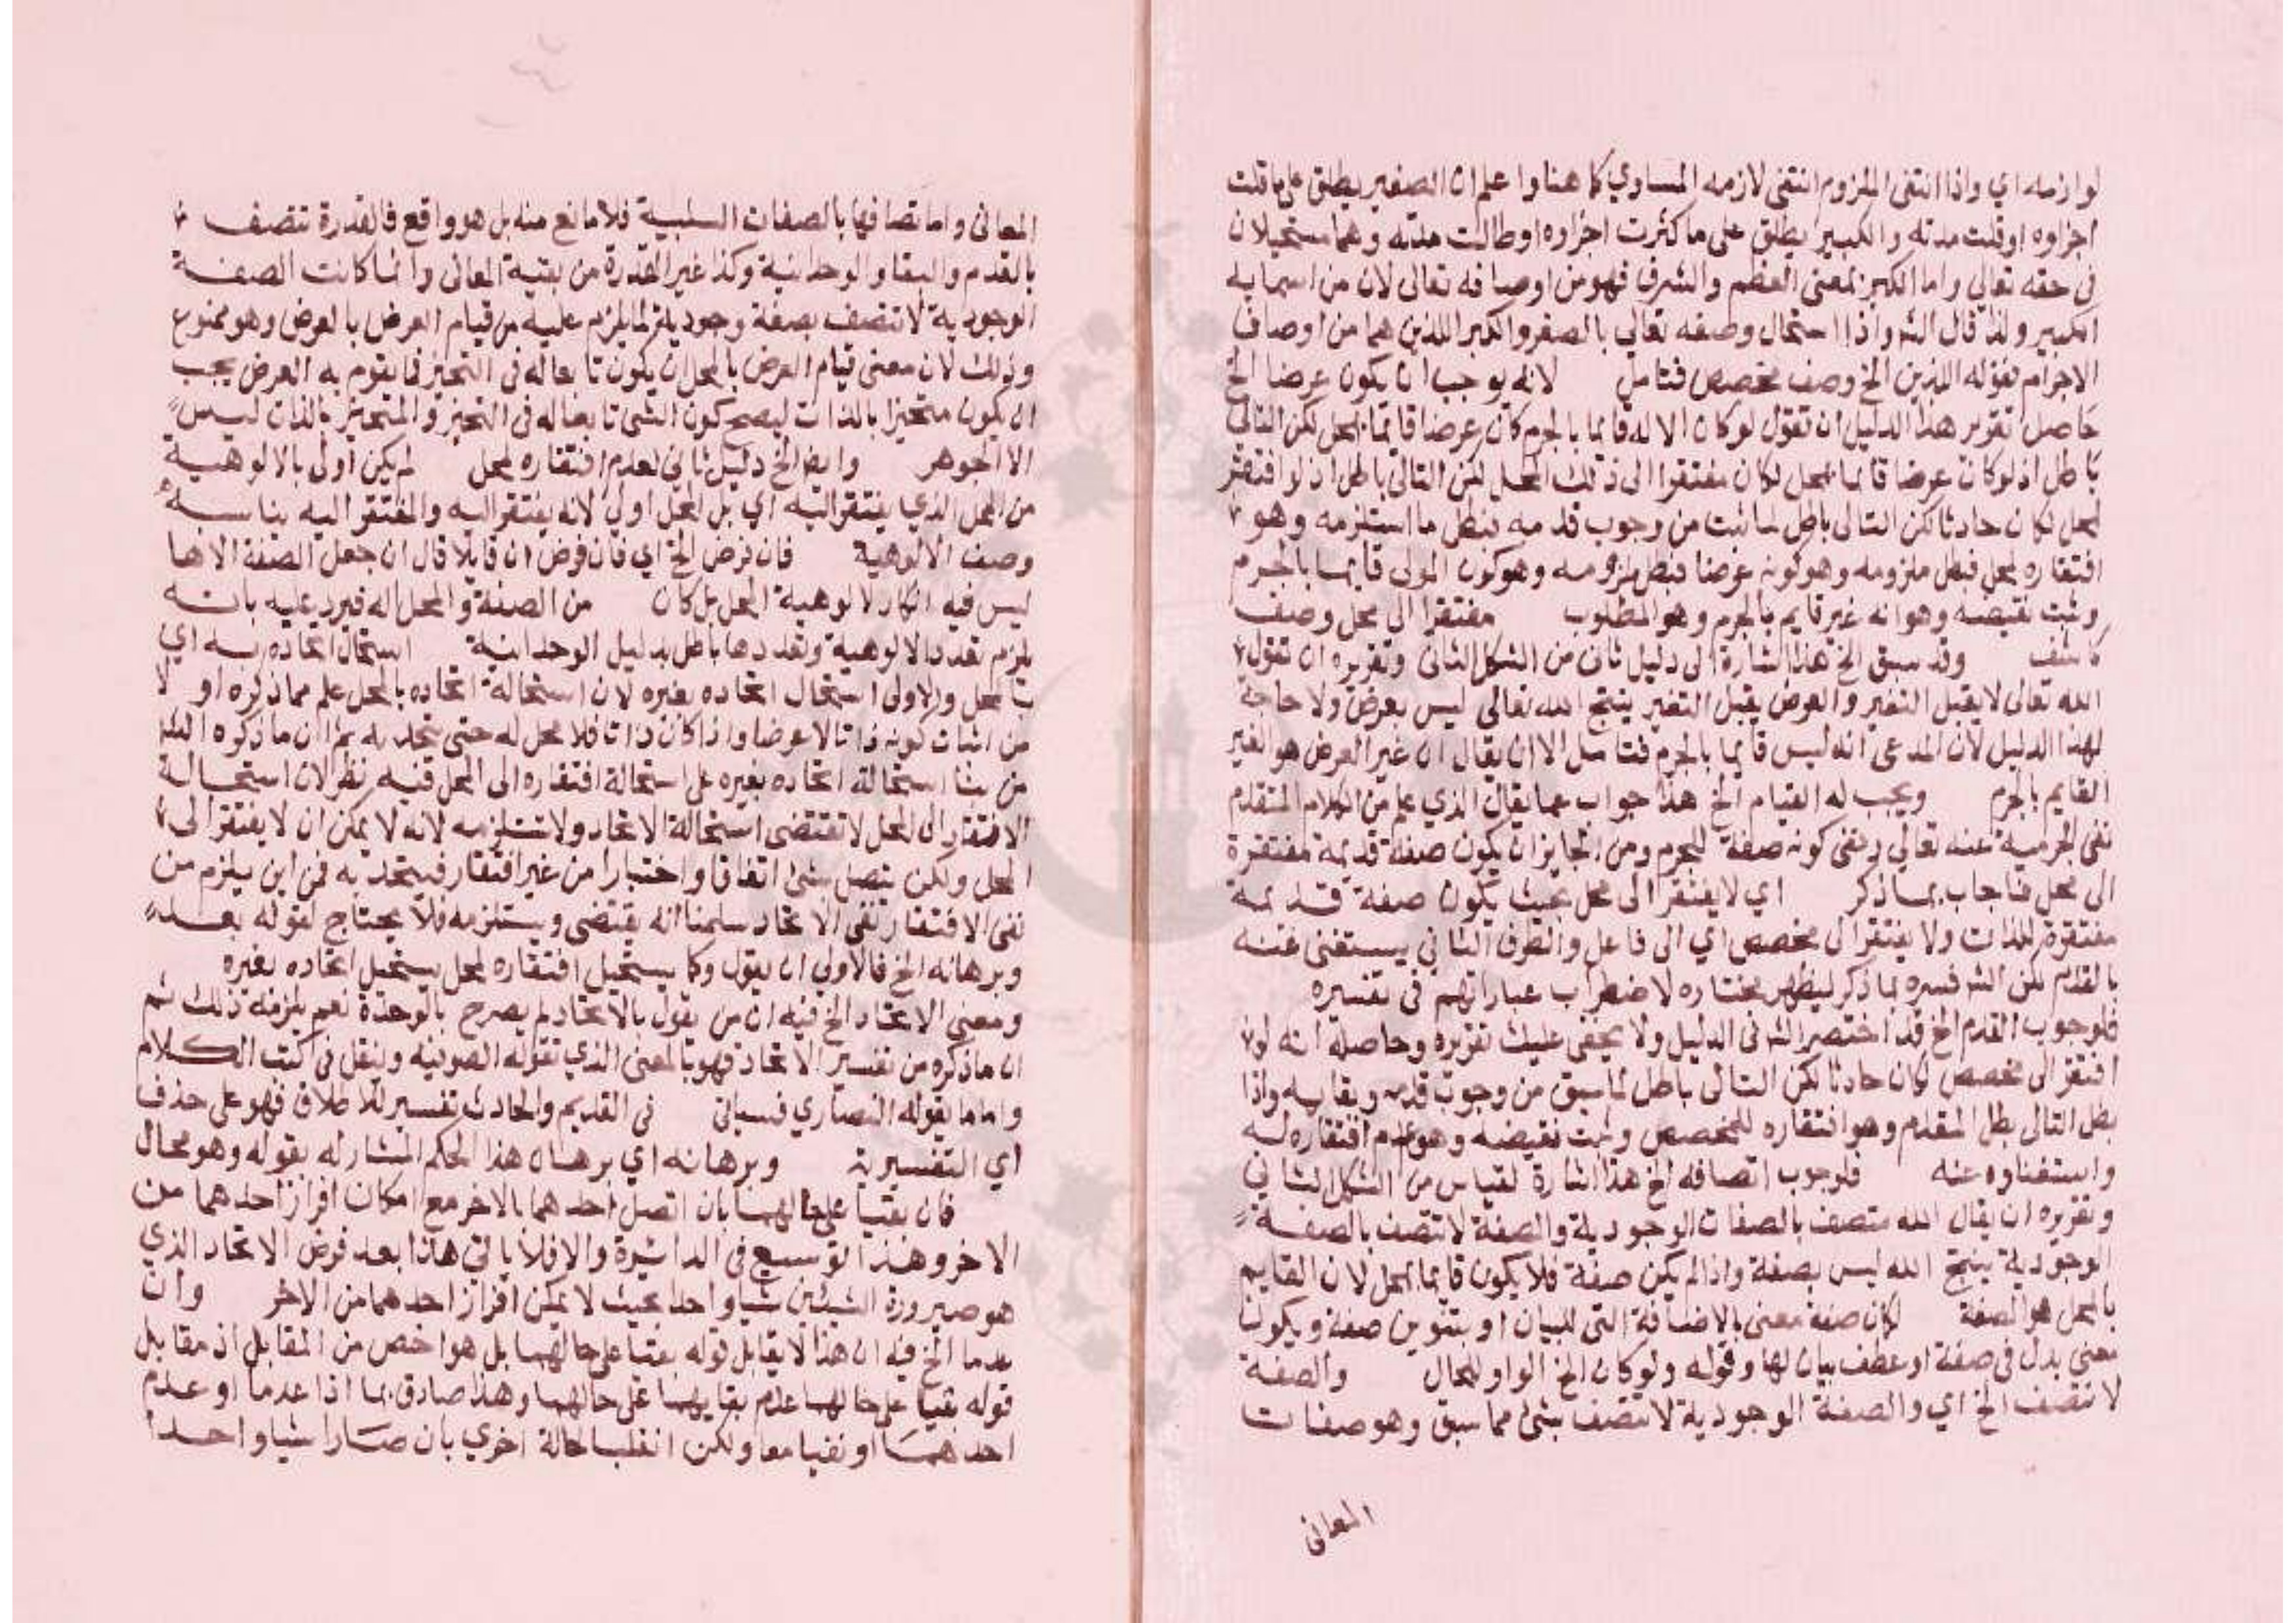 لوازمه اي واذا انتفى الملزوم انتفى لازمه المساوي كما هنا واعلم ان الصغير يطلق على ما قلت
اجزاوه او قلت مدته والكبير يطلق على ما كثرت اجزاوه او طالت مدته وهما مستحيلان
في حقه تعالي واما الكبر بمعنى العظم والشرف فهو من اوصافه تعالى لان من اسمايه
الكبير ولذا قال الشر واذا استحال وصفه تعالي بالصغر والكبر اللذين هما من اوصاف
الاجرام فقوله اللذين الخ وصف مخصص فتامل لانه يوجب ان يكون عرضا الخ
حاصل تقرير هذا الدليل ان تقول لو كان الاله قايما بالجرم كان عرضا قايما بمحل لكن التالي
باطل اذ لو كان عرضا قايما بمحل لكان مفتقرا الى ذلك المحل لكن التالي باطل اذ لو افتقر
لمحل لكان حادثا لكن التالى باطل لما ثبت من وجوب قدمه فبطل ما استلزمه وهو
افتقاره لمحل فبطل ملزومه وهو كونه عرضا فبطل ملزومه وهو كون المولى قايما بالجرم
وثبت نقيضه وهو انه غير قايم بالجرم وهو المطلوب مفتقرا الى محل وصف
كاشف وقد سبق الخ هذا اشارة الى دليل ثان من الشكل الثاني وتقريره ان تقول
الله تعالى لا يقبل التغير والعرض يقبل التغير ينتج الله تعالى ليس بعرض ولا حاجة
لهذا الدليل لان المدعى انه ليس قايما بالجرم فتامل الا ان يقال ان غير العرض هو الغير
القايم بالجرم ويجب له القيام الخ هذا جواب عما يقال الذي علم من الكلام المتقدم
نفى الجرمية عنه تعالي ونفى كونه صفة للجرم ومن الجايز ان يكون صفة قديمة مفتقرة
الى محل فاجاب بما ذكر اي لا يفتقر الى محل بحيث يكون صفة قديمة
مفتقرة للذات ولا يفتقر الى مخصص اي الى فاعل والطرف الثاني يستغنى عنه
بالقدم لكن الشر فسره بما ذكر ليظهر مختاره لاضطراب عباراتهم في تفسيره
فلوجوب القدم الخ قد اختصر الشر فى الدليل ولا يخفى عليك تقريره وحاصله انه لو
افتقر الى مخصص لكان حادثا لكن التالى باطل لما سبق من وجوب قدمه وبقايه واذا
بطل التالى بطل المقدم وهو افتقاره للمخصص وثبت نقيضه وهو عدم افتقاره له
واستغناوه عنه فلوجوب اتصافه الخ هذا اشارة لقياس من الشكل الثاني
وتقريره ان يقال الله متصف بالصفات الوجودية والصفة لا تتصف بالصفة
الوجودية ينتج الله ليس بصفة واذا لم يكن صفة فلا يكون قايما بمحل لان القايم
بالمحل هو الصفة لكان صفة معنى بالاضافة التى للبيان او بتنوين صفة ويكون
معنى بدل فى صفة او عطف بيان لها وقوله ولو كان الخ الواو للحال والصفة
لا تتصف الخ اي والصفة الوجودية لا تتصف بشئ مما سبق وهو صفات
المعانى
المعانى واما اتصافها بالصفات السلبية فلا مانع منه بل هو واقع فالقدرة تتصف
بالقدم والبقا والوحدانية وكذا غير القدرة من بقية المعانى وانما كانت الصفة
الوجودية لا تتصف بصفة وجودية لما يلزم عليه من قيام العرض بالعرض وهو ممنوع
وذلك لان معنى قيام العرض بالمحل ان يكون تابعا له فى التحيز فما يقوم به العرض يجب
ان يكون متحيزا بالذات ليصح كون الشئ تابعا له فى التحيز والمتحيز بالذات ليس
الا الجوهر وايضا الخ دليل ثاني لعدم افتقاره لمحل لم يكن اولى بالالوهية
من المحل الذي يفتقر اليه اي بل المحل اولى لانه يفتقر اليه والمفتقر اليه يناسبه
وصف الالوهية فان فرض الخ اي فان فرض ان قايلا قال ان جعل الصفة الاها
ليس فيه انكار لالوهية المحل بل كان من الصفة والمحل اله فيرد عليه بانه
يلزم تعدد الالوهية وتعددها باطل بدليل الوحدانية استحال اتحاده به اي
بالمحل والاولى استحال اتحاده بغيره لان استحالة اتحاده بالمحل علم مما ذكره او لا
من اثبات كونه ذاتا لا عرضا واذا كان ذاتا فلا محل له حتى يتحد به ثم ان ما ذكره الشر
من بنا استحالة اتحاده بغيره على استحالة افتقاره الى المحل فيه نظر لان استحالة
الافتقار الى المحل لا تقتضى استحالة الاتحاد ولا تستلزمه لانه لا يمكن ان لا يفتقر الى
المحل ولكن يتصل بشئ اتفاقا واختيارا من غير افتقار فيتحد به فمن اين يلزم من
نفى الافتقار نفى الاتحاد سلمنا انه يقتضى ويستلزمه فلا يحتاج لقوله بعد
وبرهانه الخ فالاولي ان يقول وكما يستحيل افتقاره لمحل يستحيل اتحاده بغيره
ومعنى الاتحاد الخ فيه ان من يقول بالاتحاد لم يصرح بالوحدة نعم يلزمه ذلك ثم
ان ما ذكره من تفسير الاتحاد فهو بالمعنى الذي تقوله الصوفية وينقل فى كتب الكلام
واما ما يقوله النصاري فسياتى فى القديم والحادث تفسير للاطلاق فهو على حذف
اي التفسيرية وبرهانه اي برهان هذا الحكم المشار له بقوله وهو محال
فان بقيا على حالهما بان اتصل احدهما بالاخر مع امكان افراز احدهما من
الاخر وهذا توسيع فى الدائرة والا فلا ياتي هذا بعد فرض الاتحاد الذي
هو صيرورة الشيئين شيا واحدا بحيث لا يمكن افراز احدهما من الاخر وان
عدما الخ فيه ان هذا لا يقابل قوله بقيا على حالهما بل هو اخص من المقابل اذ مقابل
قوله بقيا على حالهما عدم بقايهما على حالهما وهذا صادق بما اذا عدما او عدم
احدهما او بقيا معا ولكن انقلبا لحالة اخري بان صارا شيا واحدا